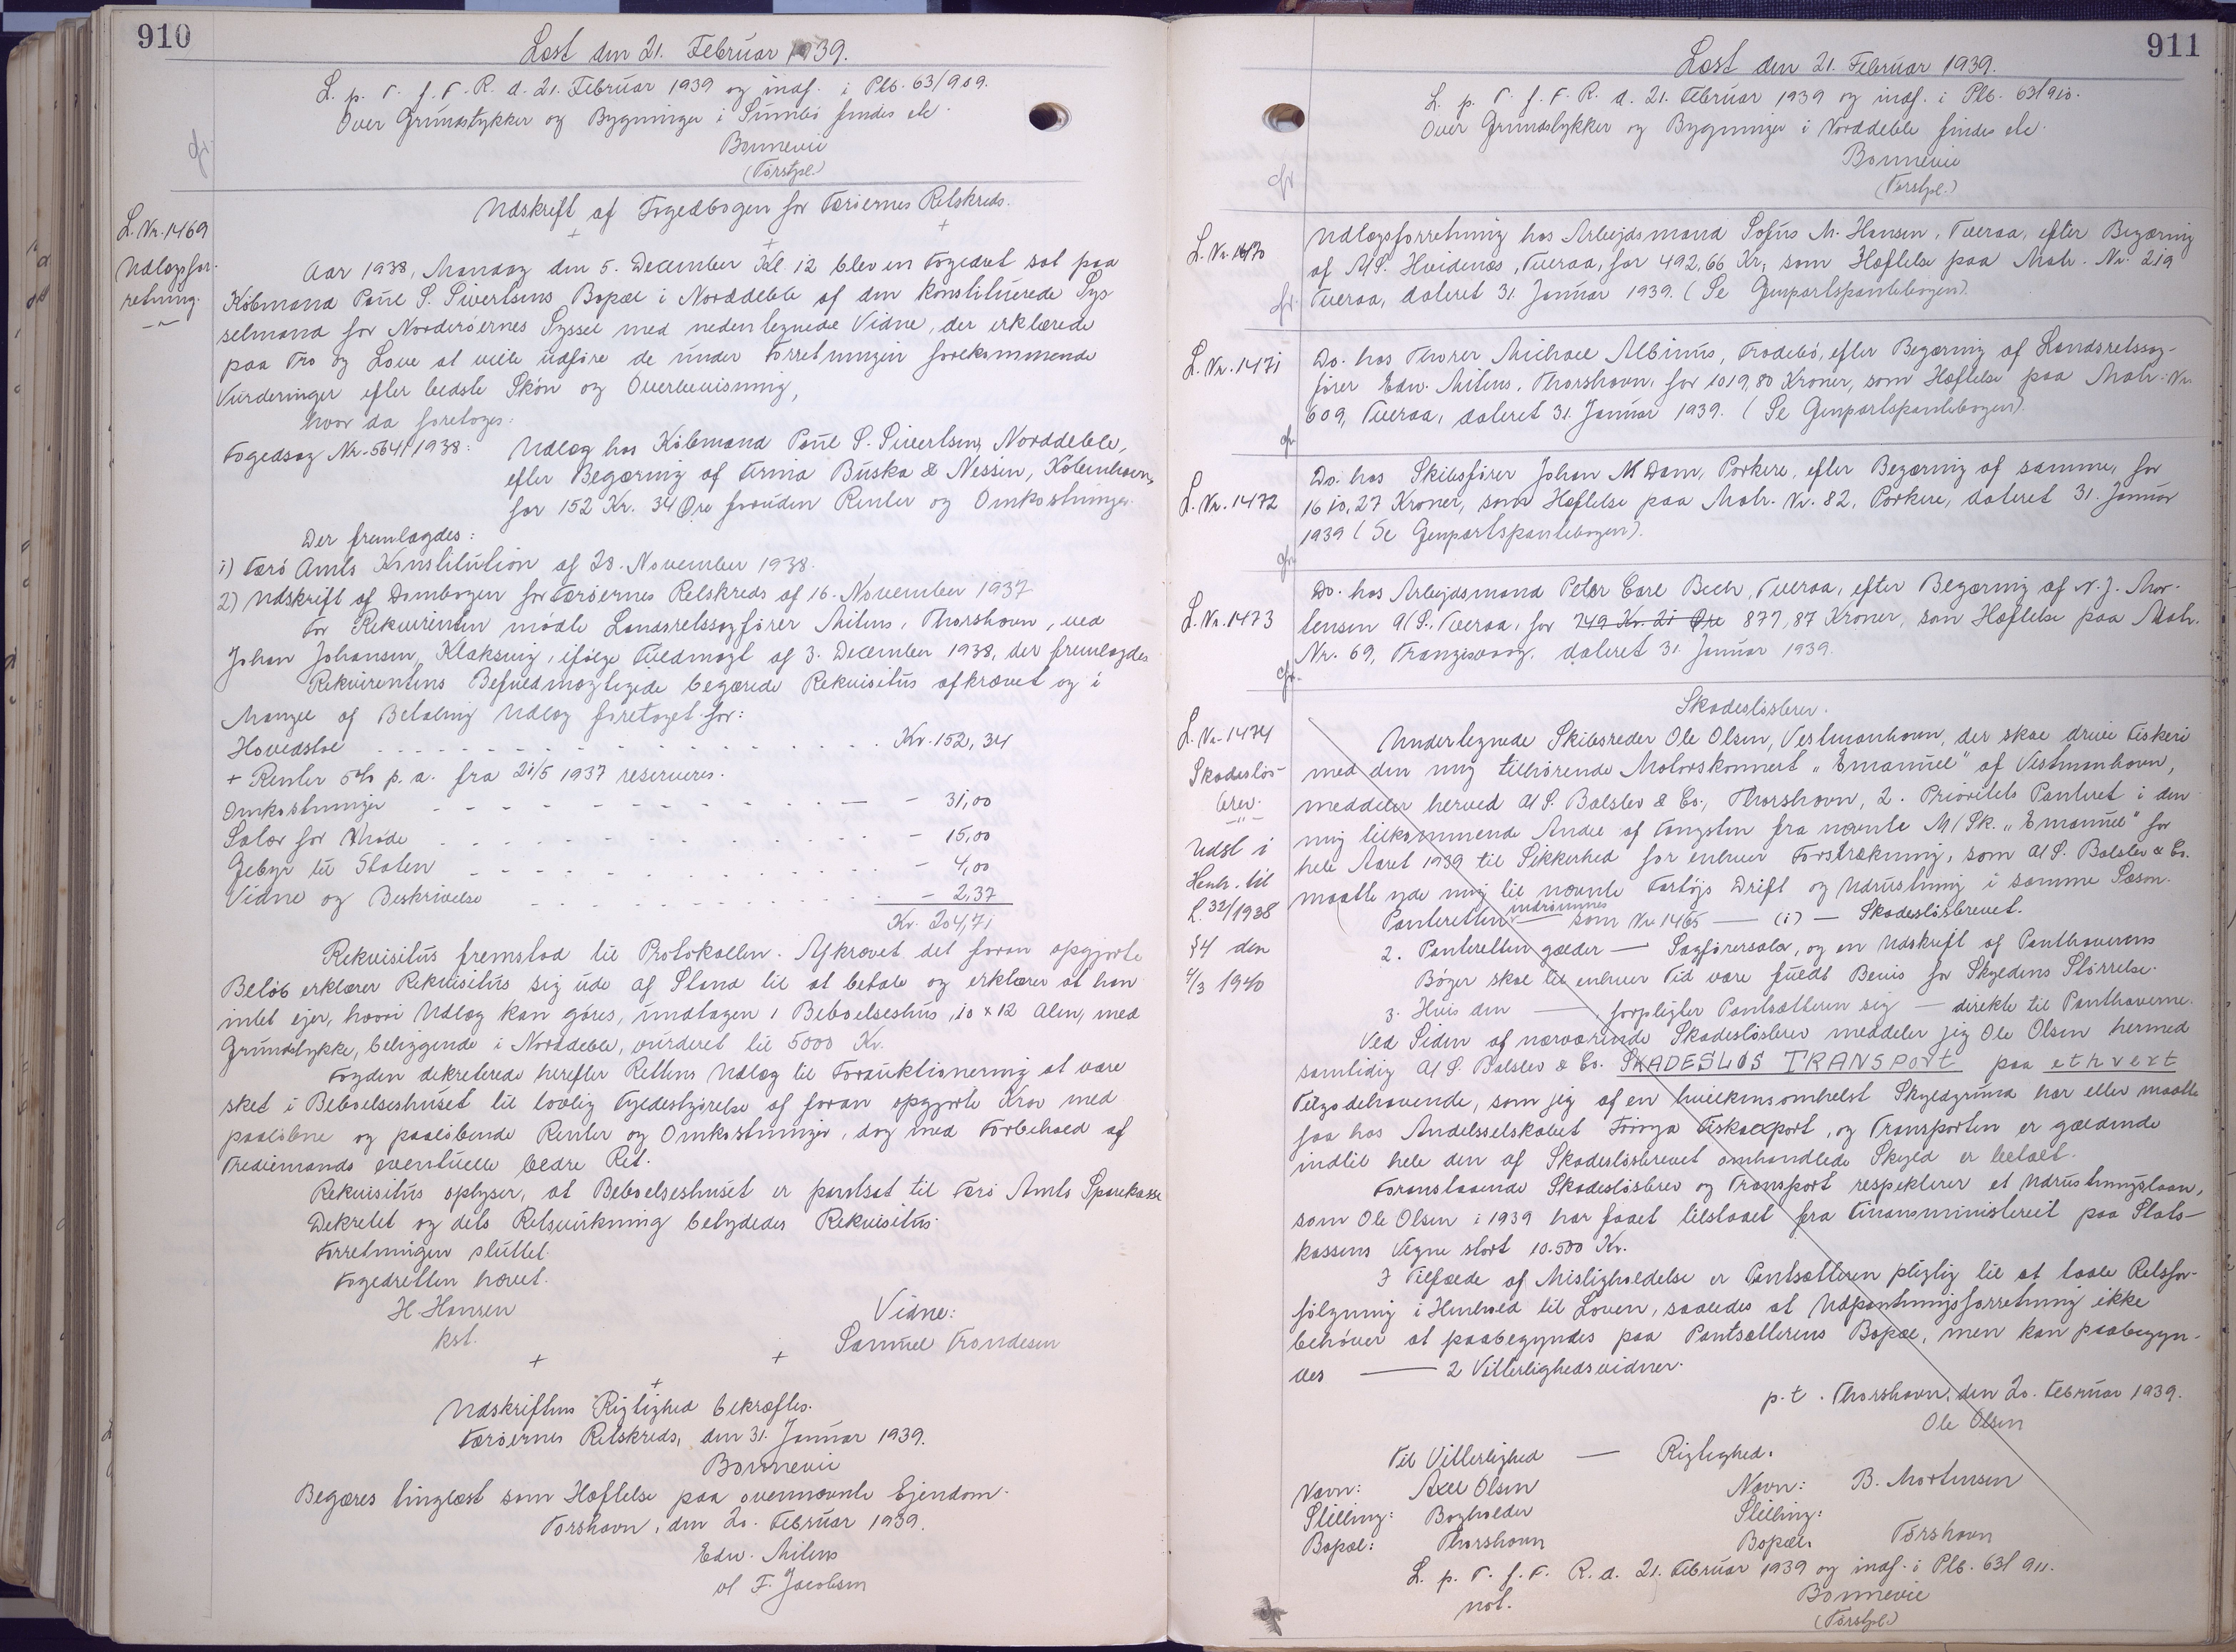 910
Læst den 21. Februar 1939.
L. p. T. f. F. R. d. 21. Februar 1939 og indf. i Plb. 63/909.
Over Grundstykker og Bygninger i Sumbö findes ele
Bonnevie
(Forstpl.)
gr.
Udskrift af Fogedbogen for Færöernes Retskreds.
L. Nr. 1469
Udlægsfor-
retning.
Aar 1938, Mandag den 5. December Kl. 12 blev en Fogedret sat paa
Köbmand Poul S. Sivertsens Bopæl i Norddeble af den konstituerede Sys
selmand for Norderöernes Syssel med nedentegnede Vidne, der erklærede
paa Tro og Love at ville udföre de under Forretningen forekommende
Vurderinger efter bedste Skön og Overbevisning,
hvor da foretoges:
Fogedsag Nr. 564/1938: Udlæg hos Köbmand Poul S. Sivertsen, Norddeble,
efter Begæring af Firma Buska & Nessin, Köbenhavn,
for 152 Kr. 34 Øre foruden Renter og Omkostninger.
Der fremlagdes:
1) Færö Amts Konstitution af 28. November 1938.
2) Udskrift af Dombogen for Færöernes Retskreds af 16. November 1937
For Rekvirenten mödte Landsretssagförer Mitens, Thorshavn, ved
Johan Johansen, Klaksvig, ifölge Fuldmagt af 3. December 1938, der fremlagdes
Rekvirentens Befuldmægtigede begærede Rekvisitus afkrævet og i
Mangel af Betaling Udlæg foretaget for:
Hovedstol - - - - - - Kr. 152,34
+ Renter 5% p. a. fra 21/5 1937 reserveres.
Omkostninger - - - - - - - 31,00
Salær for Möde - - - - - - - 15,00
Gebyr til Staten - - - - - - - 4,00
Vidne og Beskrivelse - - - - - - 2,37
Kr. 204,71
Rekvisitus fremstod til Protokollen. Afkrævet det foran opgjorte
Belöb erklærer Rekvisitus sig ude af Stand til at betale og erklærer at han
intet ejer, hvori Udlæg kan göres, undtagen 1 Beboelseshus, 10 x 12 Alen, med
Grundstykke, beliggende i Norddeble, vurderet til 5000 Kr.
Fogden dekreterede herefter Rettens Udlæg til Forauktionering at være
sket i Beboelseshuset til lovlig Fyldestgörelse af foran opgjorte Krav med
paalöbne og paalöbende Renter og Omkostninger, dog med Forbehold af
Trediemands eventuelle bedre Ret.
Rekvisitus oplyser, at Beboelseshuset er pantsat til Færö Amts Sparekasse
Dekretet og dets Retsvirkning betydedes Rekvisitus.
Forretningen sluttet.
Fogedretten hævet.
H. Hansen
kst.
Vidne:
Samuel Frandesen
Udskriftens Rigtighed bekræftes.
Færöernes Retskreds, den 31. Januar 1939.
Bonnevie
Begæres tinglæst som Hæftelse paa ovennævnte Ejendom.
Torshavn, den 20. Februar 1939.
Edw. Mitens
v/ F. Jacobsen
911
Læst den 21. Februar 1939.
L. p. T. f. F. R. d. 21. Februar 1939 og indf. i Plb. 63/910.
Over Grundstykker og Bygninger i Norddeble findes ele.
Bonnevie
(Forstpl.)
gr.
L. Nr. 1470
Udlægsforretning hos Arbejdsmand Sofus M. Hansen, Tveraa, efter Begæring
af A/S. Hvidenæs, Tveraa, for 492,66 Kr., som Hæftelse paa Matr. Nr. 219
Tveraa, dateret 31. Januar 1939. (Se Genpartspantebogen).
gr.
L. Nr. 1471
Do. hos Thorer Michael Albinus, Frodebö, efter Begæring af Landsretssag-
förer Edw. Mitens, Thorshavn, for 1019,80 Kroner, som Hæftelse paa Matr. Nr.
609, Tveraa, dateret 31. Januar 1939. (Se Genpartspantebogen).
gr.
L. Nr. 1472
Do. hos Skibsförer Johan M Dam, Porkere, efter Begæring af samme, for
1610,27 Kroner, som Hæftelse paa Matr. Nr. 82, Porkere, dateret 31. Januar
1939 (Se Genpartspantebogen).
gr.
L. Nr. 1473
Do. hos Arbejdsmand Peter Carl Bech, Tveraa, efter Begæring af N. J. Mor-
tensen A/S., Tveraa, for 749 Kr. 21 Øre 877,87 Kroner, som Hæftelse paa Matr.
Nr. 69, Frangisvaag, dateret 31. Januar 1939.
gr.
Skadeslösbrev.
L. Nr. 1474
Skadeslös-
brev.
Udst i
Henh. til
L. 32/1938
§4 den
4/3 1940
Undertegnede Skibsreder Ole Olsen, Vestmanhavn, der skal drive Fiskeri
med den mig tilhörende Motorskonnert „Emanuel" af Vestmanhavn,
meddeler herved A/S. Balslev & Co., Thorshavn, 2. Prioritets Panteret i den
mig tilkommende Andel af Fangsten fra nævnte M/Sk. „Emanuel" for
hele Aaret 1939 til Sikkerhed for enhver Forstrækning, som A/S. Balslev & Co.
maatte yde mig til nævnte Fartöjs Drift og Udrustning i samme Sæson.
Panteretten indrömmes — som Nr 1465 — (1) — Skadeslösbrevet.
2. Panteretten gælder — Sagförersalær, og en Udskrift af Panthaverens
Böger skal til enhver Tid være fuldt Bevis for Skyldens Störrelse.
3. Hvis den — , forpligter Pantsætteren sig — direkte til Panthaverne.
Ved Siden af nærværende Skadeslösbrev meddeler jeg Ole Olsen hermed
samtidig A/S. Balslev & Co. SKADESLØS TRANSPORT paa ethvert
Tilgodehavende, som jeg af en hvilkensomhelst Skyldgrund har eller maatte
faa hos Andelsselskabet Föroya Fiskaexport, og Transporten er gældende
indtil hele den af Skadeslösbrevet omhandlede Skyld er betalt.
Foranstaaende Skadeslösbrev og Transport respekterer et Udrustningslaan,
som Ole Olsen i 1939 har faaet tilstaaet fra Finansministeriet paa Stats-
kassens Vegne stort 10.500 Kr.
I Tilfælde af Misligholdelse er Pantsætteren pligtig til at taale Retsfor-
fölgning i Henhold til Loven, saaledes at Udpantningsforretning ikke
behöver at paabegyndes paa Pantsætterens Bopæl, men kan paabegyn-
des — 2 Vitterlighedsvidner.
p. t. Thorshavn, den 20. Februar 1939.
Ole Olsen
Til Vitterlighed — Rigtighed:
Navn: Axel Olsen Navn: B. Mortensen
Stilling: Bogholder Stilling:
Bopæl: Thorshavn Bopæl: Törshavn
L. p. T. f. F. R. d. 21. Februar 1939 og indf. i Plb. 63/911.
not.
Bonnevie
(Forstpl.)